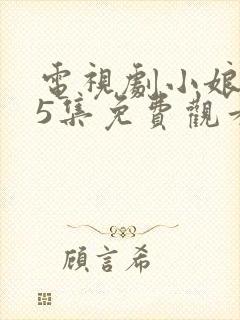 電視劇小娘
5集免費觀
顧言希